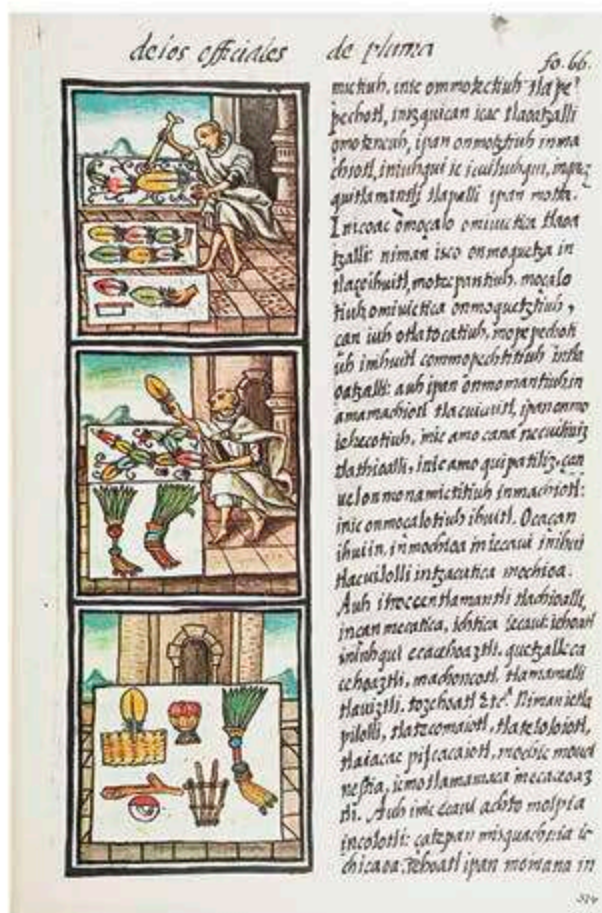 de los officiales de pluma
fo. 66.
mictiuh, inic ommotectiuh tlape
pechotl, inizquican icac tlaoatzalli
omotencuh, ipan onmotztiuh in ma
chiotl, iniuhqui ic icuiliuhqui,
quitlamantli tlapalli ipan motta.
Inicoac omoçalo omiuictica tlaoa
tzalli: niman isco onmoquetza in
tlaçoihuitl, motecpantiuh, moçalo
tiuh omiuictica onmoquetztiuh,
can iuh otlatocatiuh, mopepechoti
uh imhuitl commopechtitiuh intla
oatzalli: auh ipan onmomantiuh in
amamachiotl tlacuilutl, ipan onmo
iehecotiuh, inic amo cana necuiliuiz
tlachioalli, inic amo quipatiliz, çan
uel onmonamictitiuh inmachiotl:
inic onmoçalotiuh ihuitl. Ocaçan
ihui in, in mochioa in iecaui in ihui
tlacuilolli intzacutica mochioa.
Auh itoccentlamantli tlachioalli,
incan mecatica, ichtica iecaui: iehoatl
iniuhqui ecacehoaztli, quetzalleca
cehoaztli, machoncotl, tlamamalli
tlauiztli, tozehoatl Etc.ª Niman ietla
pilolli, tlatecomaiotl, tlateloloiotl,
tlaiacac pilcacaiotl, mochic
icmotlamamaca mecaceoaz
tli. Auh inic iecaui achto molpia
incolotli: çatepan misquachuia ic
chicaoa. iehoatl ipan momana in